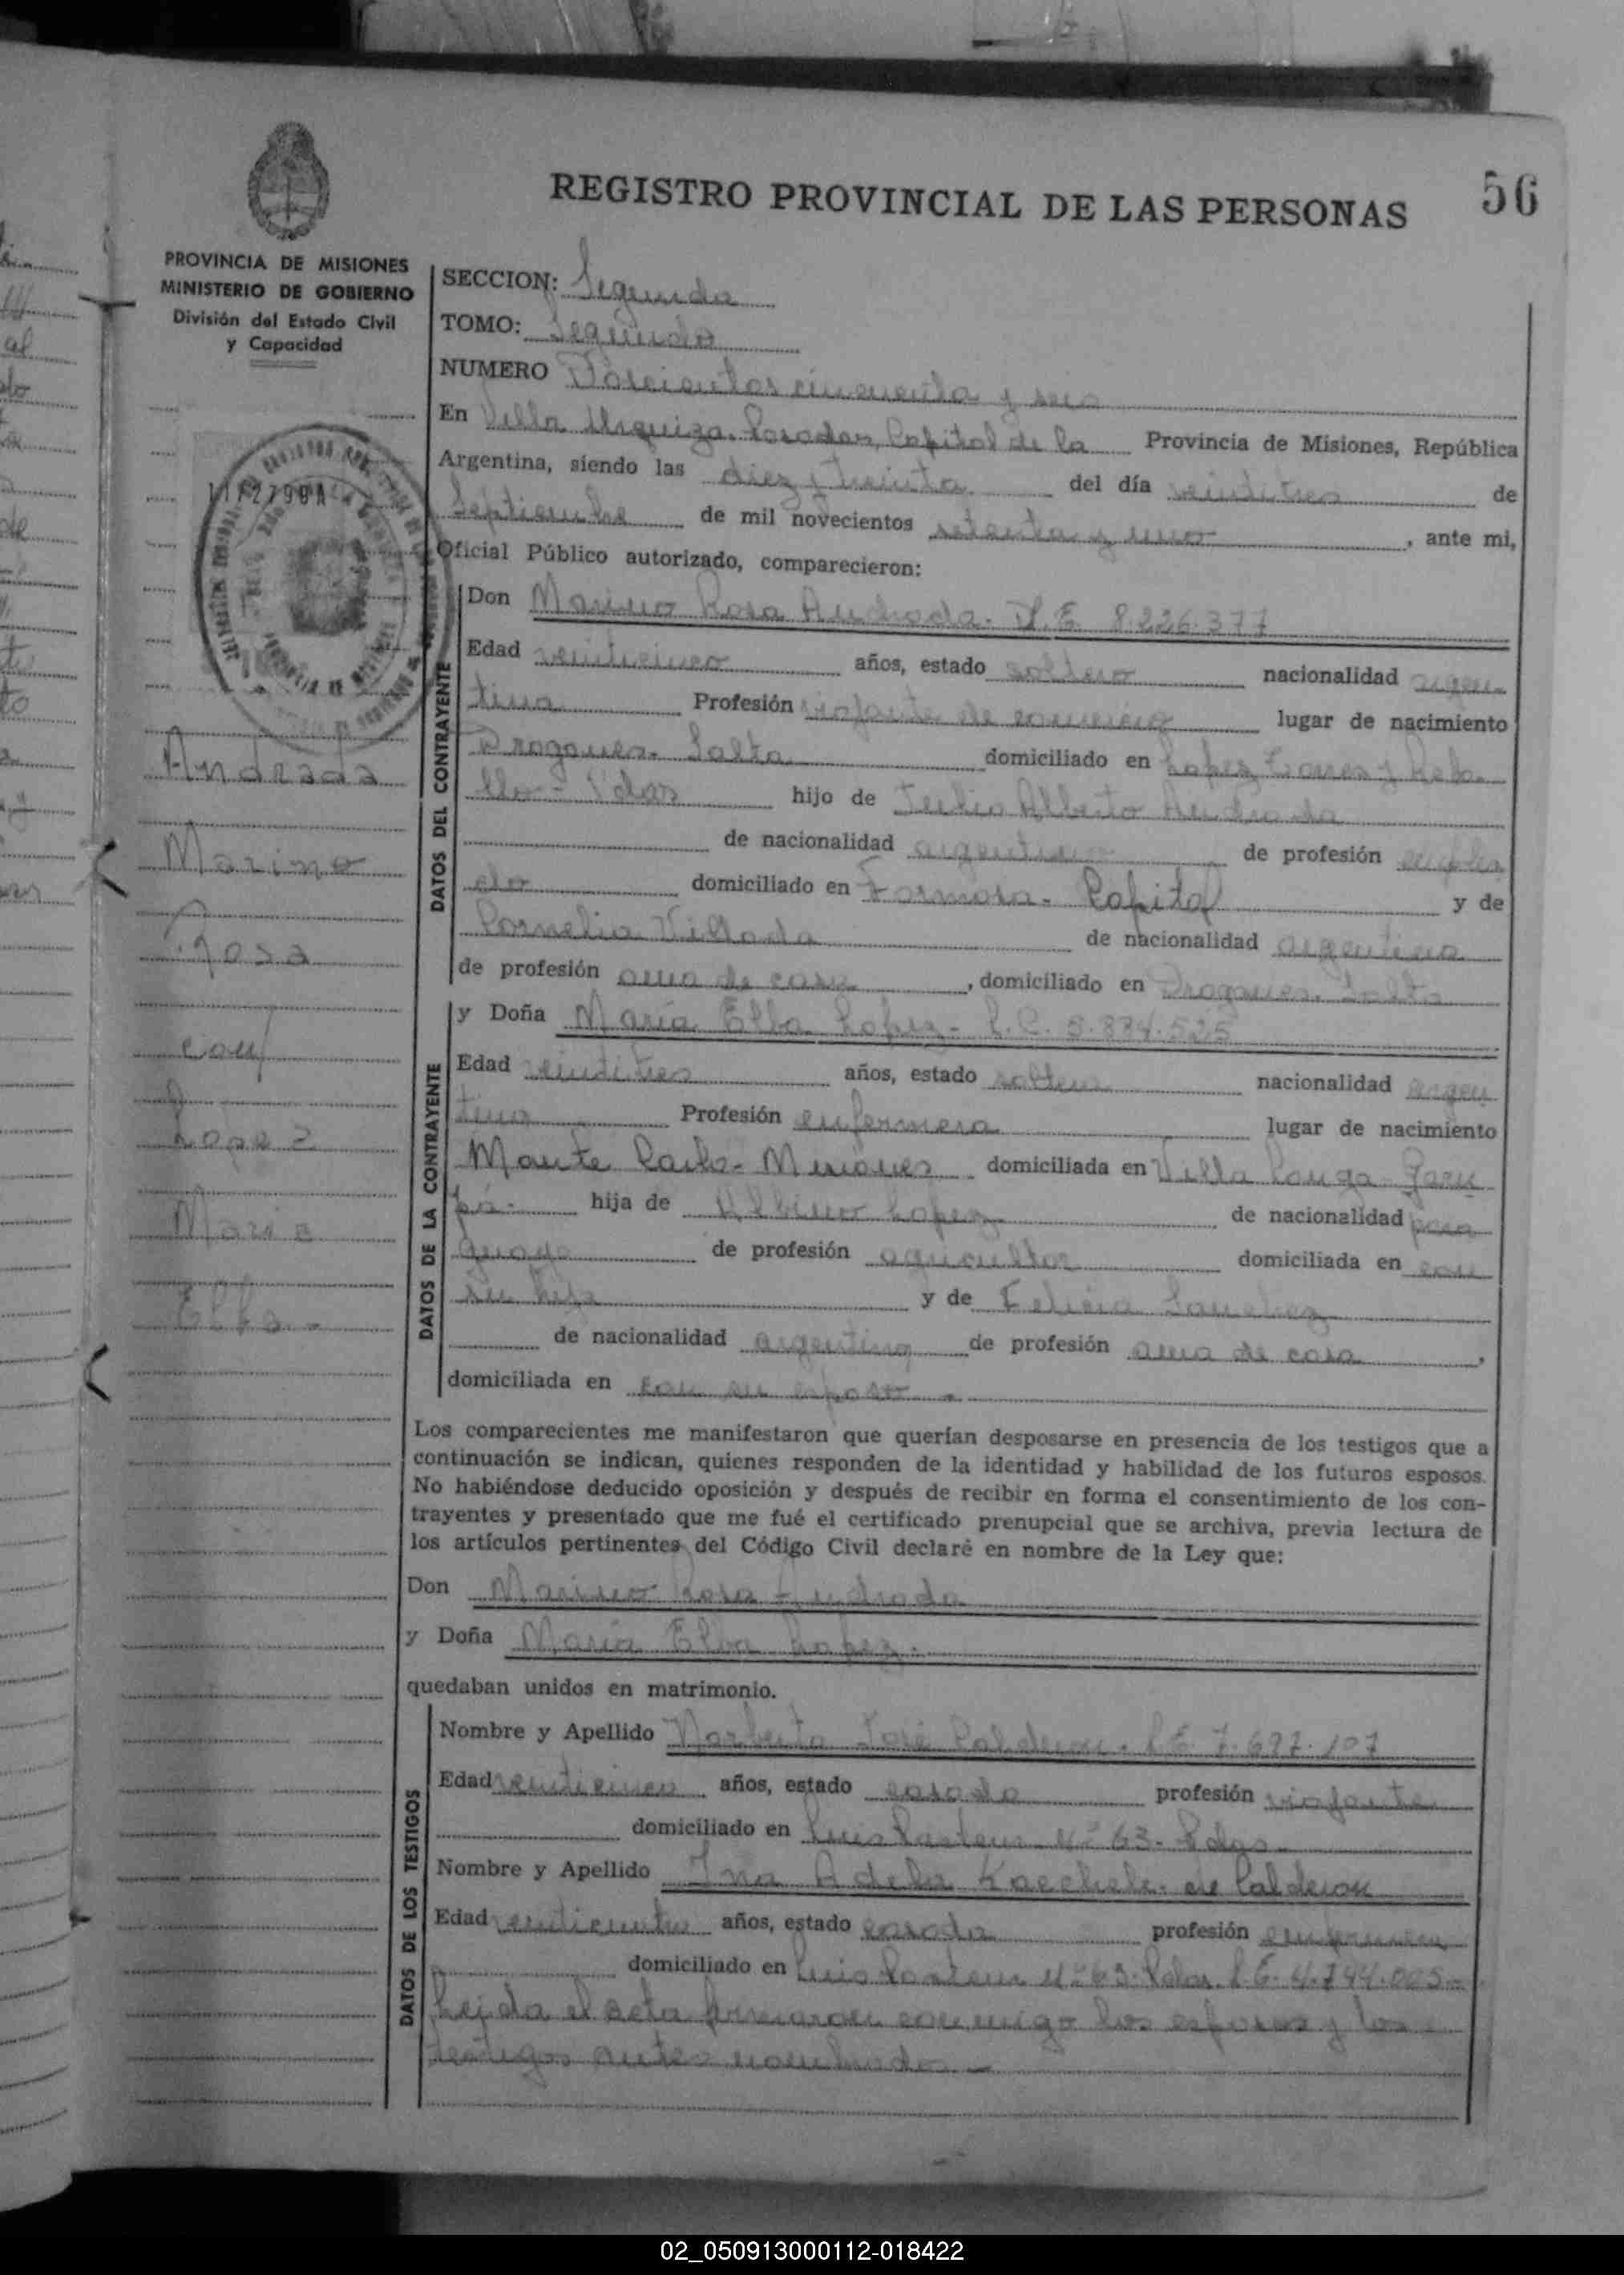 REGISTRO PROVINCIAL DE LAS PERSONAS
56
PROVINCIA DE MISIONES
MINISTERIO DE GOBIERNO
División del Estado Civil
y Capacidad
1172790A
SECCION: Segunda
TOMO: Segundo
NUMERO Doscientos cincuenta y seis
En Villa Urquiza, Posadas, Capital de la Provincia de Misiones, República
Argentina, siendo las diez y treinta del día veintitres de
Septiembre de mil novecientos setenta y uno, ante mi,
Oficial Público autorizado, comparecieron:
DATOS DEL CONTRAYENTE
Don Marino Rosa Andrada. 8.226.377
Edad veinticinco años, estado soltero nacionalidad argen
tina Profesión viajante de comercio lugar de nacimiento
Dragones- Salta domiciliado en Lopez Torres y
Pdas hijo de Julio Alberto Andrada
de nacionalidad argentino de profesión emplea
do domiciliado en Formosa- Capital y de
Cornelia Villada de nacionalidad argentina
de profesión ama de casa, domiciliado en Dragones. Salta
DATOS DE LA CONTRAYENTE
y Doña María Elba Lopez- L.C. 5.874.525
Edad veintitres años, estado soltera nacionalidad argen
tina Profesión enfermera lugar de nacimiento
Monte Carlo- Misiones domiciliada en Villa Longa- Garu
pá- hija de Albino Lopez de nacionalidad para
guayo de profesión agricultor domiciliada en con
su hija y de Felicia Sanchez
de nacionalidad argentina de profesión ama de casa,
domiciliada en con su esposo -
Los comparecientes me manifestaron que querían desposarse en presencia de los testigos que a
continuación se indican, quienes responden de la identidad y habilidad de los futuros esposos.
No habiéndose deducido oposición y después de recibir en forma el consentimiento de los con-
trayentes y presentado que me fué el certificado prenupcial que se archiva, previa lectura de
los artículos pertinentes del Código Civil declaré en nombre de la Ley que:
Don Marino Rosa Andrada
y Doña María Elba Lopez-
quedaban unidos en matrimonio.
DATOS DE LOS TESTIGOS
Nombre y Apellido Norberto José Calderon. L.E. 7.677.107
Edad veinticinco años, estado casado profesión viajante
domiciliado en Luis Pasteur Nº 63- Pdas
Nombre y Apellido Ina Adela Kaechele de Calderon
Edad veinticuatro años, estado casada profesión enfermera
domiciliado en Luis Pasteur Nº 63- Pdas. 4.744.005-
Leída el acta firmaron conmigo los esposos y los
testigos antes nombrados-
Andrada
Marino
Rosa
con
Lopez
Maria
Elba-
02_050913000112-018422